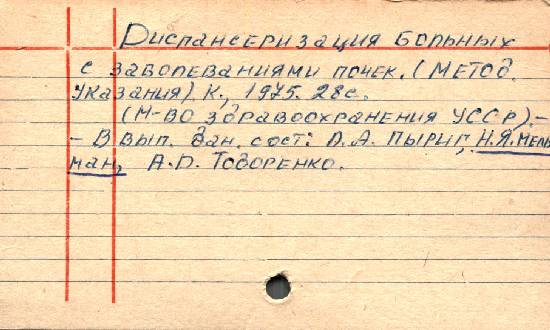 Диспансеризация больных
с заболеваниями почек. (Метод.
указания). К., 1975. 28с.
(М-во здравоохранения УССР).-
- В вып. дан. сост: Л.А. Пыриг, Н.Я. Мель
ман, А.D. Тодоренко.